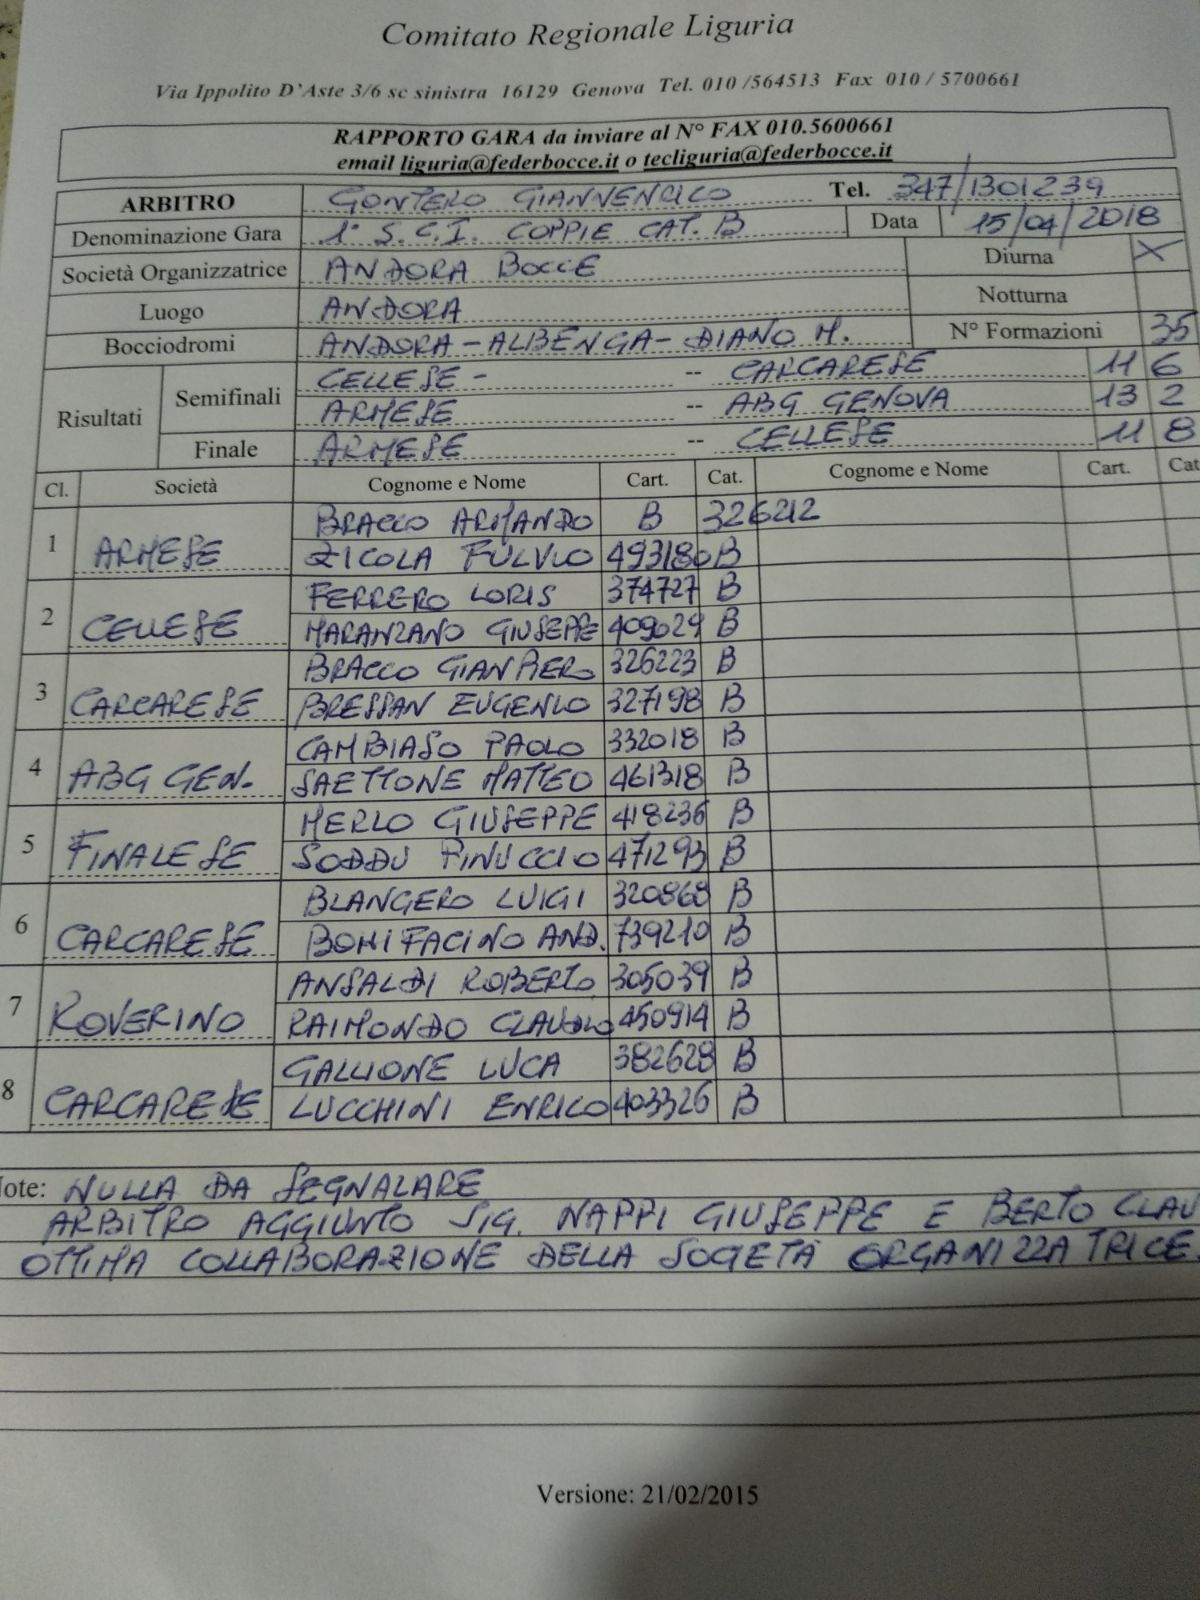 Comitato Regionale Liguria
Via Ippolito D'Aste 3/6 sc sinistra 16129 Genova Tel. 010 /564513 Fax 010 / 5700661
RAPPORTO GARA da inviare al N° FAX 010.5600661
email liguria@federbocce.it o tecliguria@federbocce.it
ARBITRO GONTERO GIANNENRICO Tel. 347/1301239
Denominazione Gara 1° S.C.I. COPPIE CAT. B Data 15/04/2018
Società Organizzatrice ANDORA BOCCE Diurna X
Luogo ANDORA Notturna
Bocciodromi ANDORA - ALBENGA - DIANO M. N° Formazioni 35
Risultati Semifinali CELLESE - -- CARCARESE 11 6
ARMESE -- ABG GENOVA 13 2
Finale ARMESE -- CELLESE 11 8
Cl. Società Cognome e Nome Cart. Cat. Cognome e Nome Cart. Cat
1 ARMESE BRACCO ARMANDO B 326212
ZICOLA FULVIO 493180 B
2 CELLESE FERRERO LORIS 374727 B
MARANZANO GIUSEPPE 409029 B
3 CARCARESE BRACCO GIANPIERO 326223 B
BRESSAN EUGENIO 327198 B
4 ABG GEN. CAMBIASO PAOLO 332018 B
SAETTONE MATTEO 461318 B
5 FINALESE MERLO GIUSEPPE 418236 B
SODDU PINUCCIO 471293 B
6 CARCARESE BLANGERO LUIGI 320868 B
BONIFACINO AND. 739210 B
7 ROVERINO ANSALDI ROBERTO 305039 B
RAIMONDO CLAUDIO 450914 B
8 CARCARESE GALLIONE LUCA 382628 B
LUCCHINI ENRICO 403326 B
Note: NULLA DA SEGNALARE
ARBITRO AGGIUNTO SIG. NAPPI GIUSEPPE E BERTO CLAU
OTTIMA COLLABORAZIONE DELLA SOCIETÀ ORGANIZZATRICE.
Versione: 21/02/2015